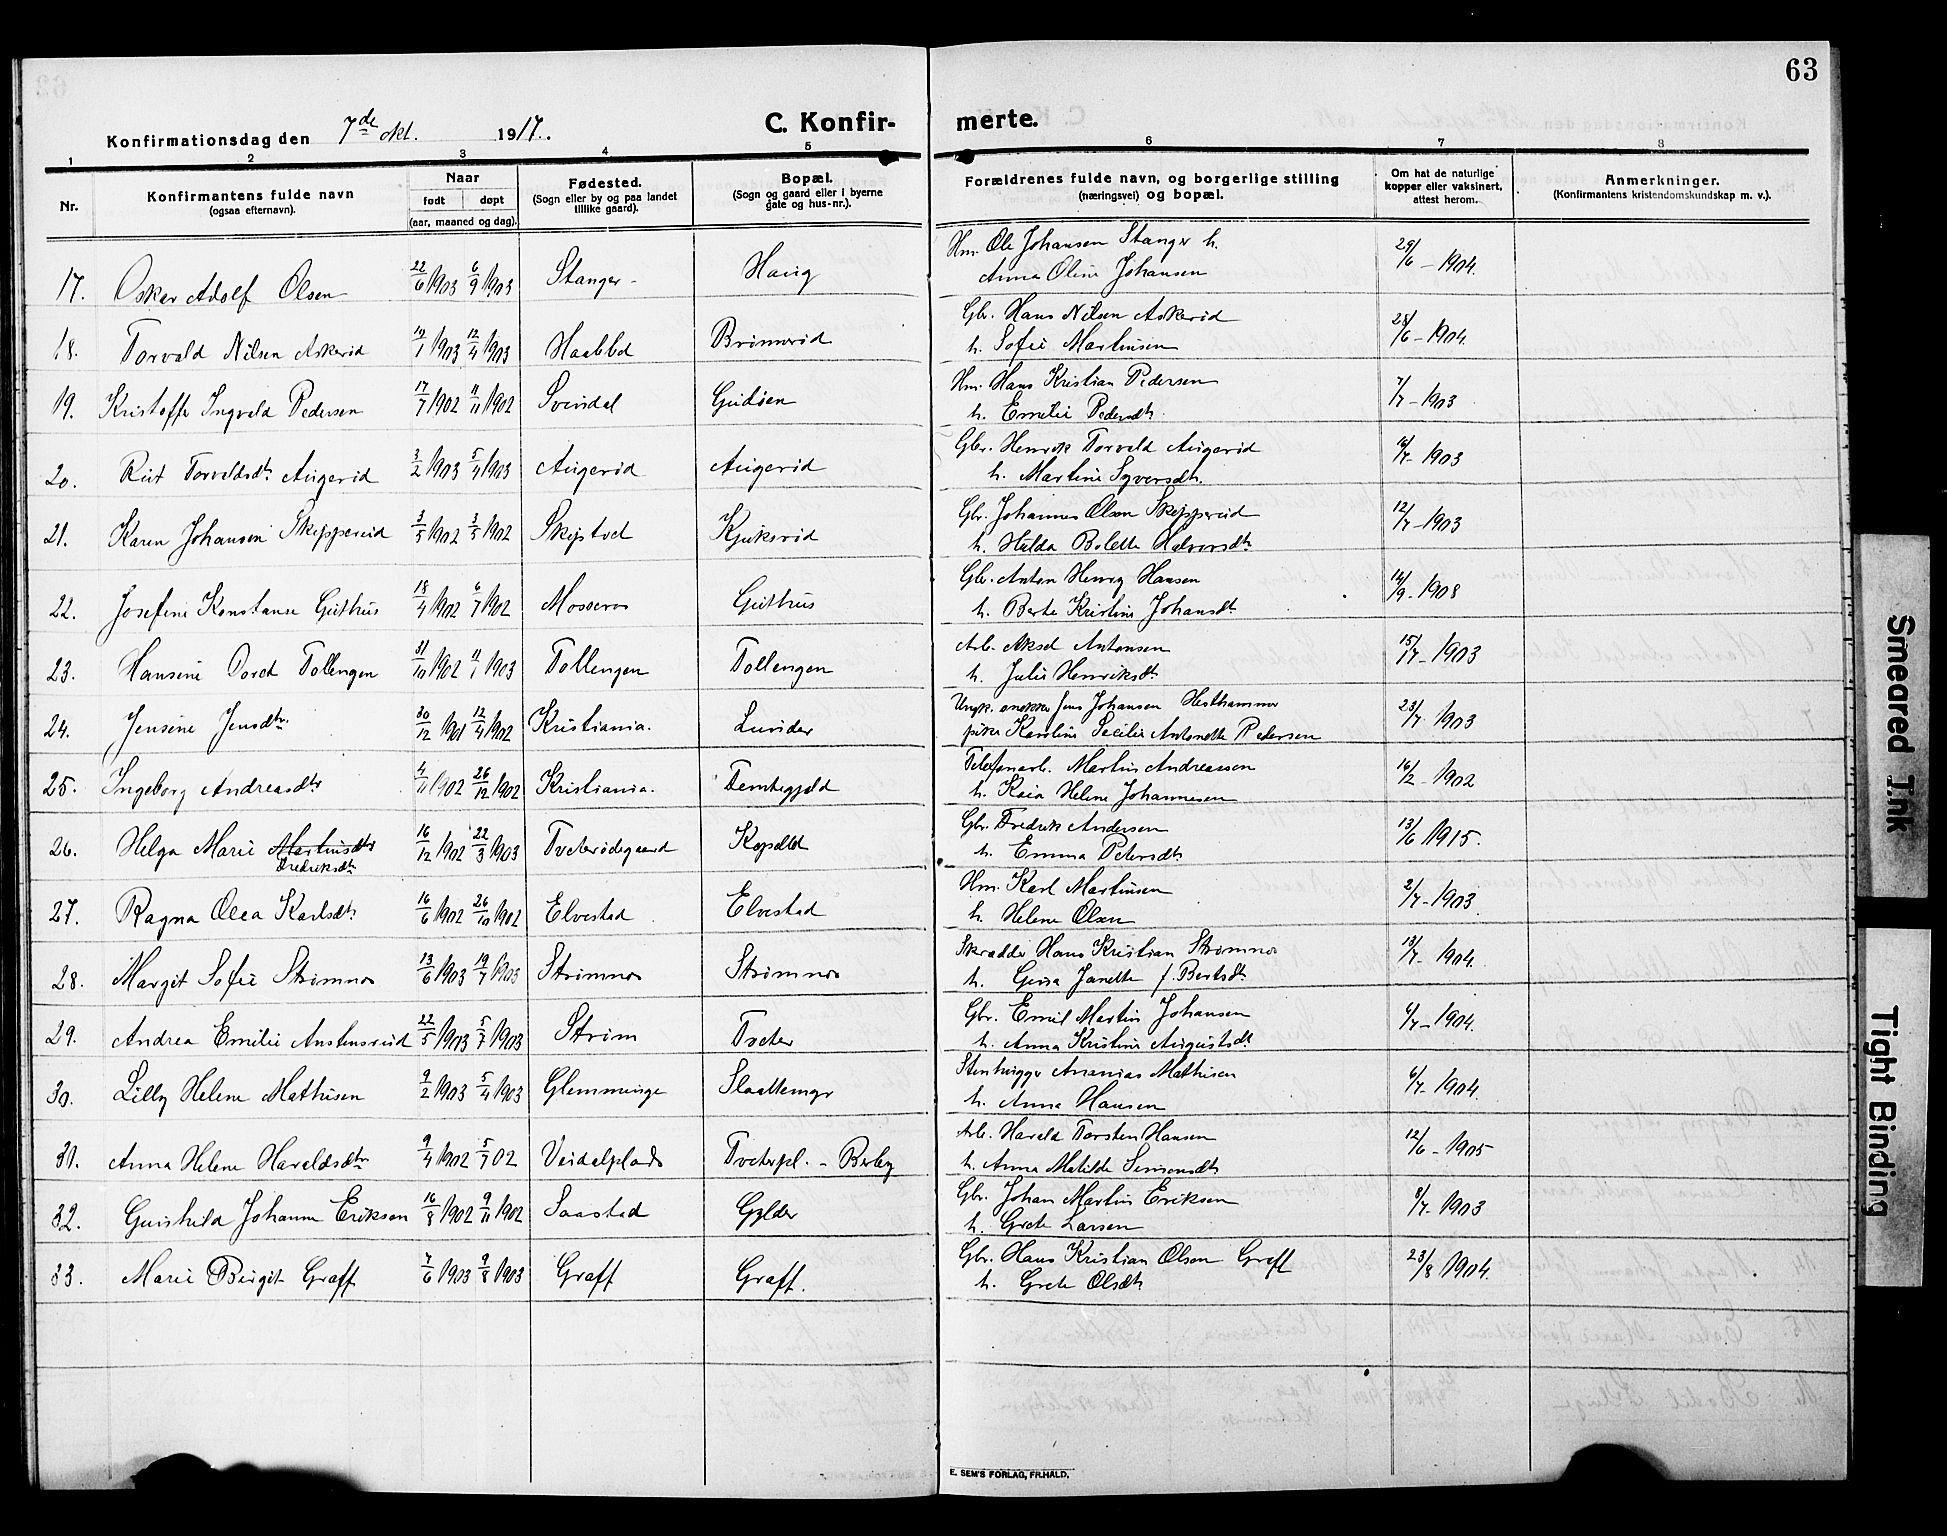 63
Konfirmationsdag den 7de okt. 1917. C. Konfir- merte.
1 2 3 4 5 6 7 8
Nr. Konfirmantens fulde navn (ogsaa efternavn). Naar født døpt (aar, maaned og dag). Fødested. (Sogn eller by og paa landet tillike gaard). Bopæl. (Sogn og gaard eller i byerne gate og hus-nr.). Forældrenes fulde navn, og borgerlige stilling (næringsvei) og bopæl. Om hat de naturlige kopper eller vaksinert, attest herom. Anmerkninger. (Konfirmantens kristendomskundskap m. v.).
17. Oskar Adolf Olsen 22/6 1903 6/9 1903 Stanger Haug Hm. Ole Johansen Stanger h. 29/6 - 1904.
Anna Oline Johansen
18. Torvald Nilsen Askerød 19/1 1903 12/4 1903 Haabbøl Brønnerød Gbr. Hans Nilsen Askerød 28/6 - 1904.
h. Sofie Martinsen
19. Kristoffe Ingvald Pedersen 17/7 1902 11/11 1902 Svindal Gudøen Hm. Hans Kristian Pedersen 7/7 - 1903
h. Emilie Pedersdtr.
20. Rut Torvaldsdtr. Augerød 3/2 1903 5/4 1903 Augerød Augerød Gbr. Henrik Torvald Augerød 6/7 - 1903
h. Martine Syversdtr.
21. Karen Johansen Skipperud 3/5 1902 3/5 1902 Skiptvet Kjuksrød Gbr. Johannes Olsen Skipperud 12/7 - 1903
h. Hulda Bolette Halvorsdtr
22. Josefine Konstance Guthus 18/4 1902 6/7 1902 Mosseros Guthus Gbr. Anton Henry Hansen 14/9 - 1908
h. Berte Kristine Johansdtr
23. Hansine Doret Tollengen 31/10 1902 11/1 1903 Tollengen Tollengen Arb. Aksel Antonsen 15/7 - 1903
h. Julie Henriksdtr
24. Jensine Jensdtr. 30/12 1901 12/4 1902 Kristiania. Lunder Ungk. snekker Jens Johansen Hesthammer 23/7 - 1903
pike Karoline Secilie Antonette Pedersen
25. Ingeborg Andreasdtr 4/11 1902 26/12 1902 Kristiania. Femtegjeld Telefonarb. Martin Andreassen 16/2 - 1902
h. Kaia Helene Johannesen
26. Helga Marie Martinsdtr 16/12 1902 22/3 1903 Tveterødegaard Kopseld Gbr. Fredrik Andersen 13/6 1915.
Fredriksdtr h. Emma Petersdtr
27. Ragna Olea Karlsdtr 16/6 1902 26/10 1902 Elvestad Elvestad Hm. Karl Martinsen 2/7 - 1903
h. Helene Olsen
28. Margit Sofie Strømnes 13/6 1903 19/7 1903 Strømnes Strømnes Skrædder Hans Kristian Strømnes 13/7 - 1904.
h. Gina Janette f. Berlsdtr
29. Andrea Emilie Anstensrud 22/5 1903 5/7 1903 Strøm Tveter Gbr. Emil Martin Johansen 6/7 - 1904.
h. Anna Kristine Augustsdtr
30. Lilly Helene Mathisen 9/2 1903 5/4 1903 Glemminge Slaattemyr Stenhugger Ananias Mathisen 6/7 - 1904.
h. Anna Hansen
31. Anna Helene Haraldsdtr 9/4 1902 5/7 02 Veidalplads Tveterpl. - Berby Arb. Harald Torsten Hansen 12/6 - 1905
h. Anna Matilde Simensdtr
32. Gunhild Johanne Eriksen 16/8 1902 9/11 1902 Saastad Gylder Gbr. Johan Martin Eriksen 8/7 - 1903
h. Grete Larsen
33. Marie Birgit Graff 7/6 1903 9/8 1903 Graff Graff. Gbr. Hans Kristian Olsen Graff 23/8 1904.
h. Grete Olsdtr
E. SEM'S FORLAG, FR.HALD.
Smeared Ink
Tight Binding